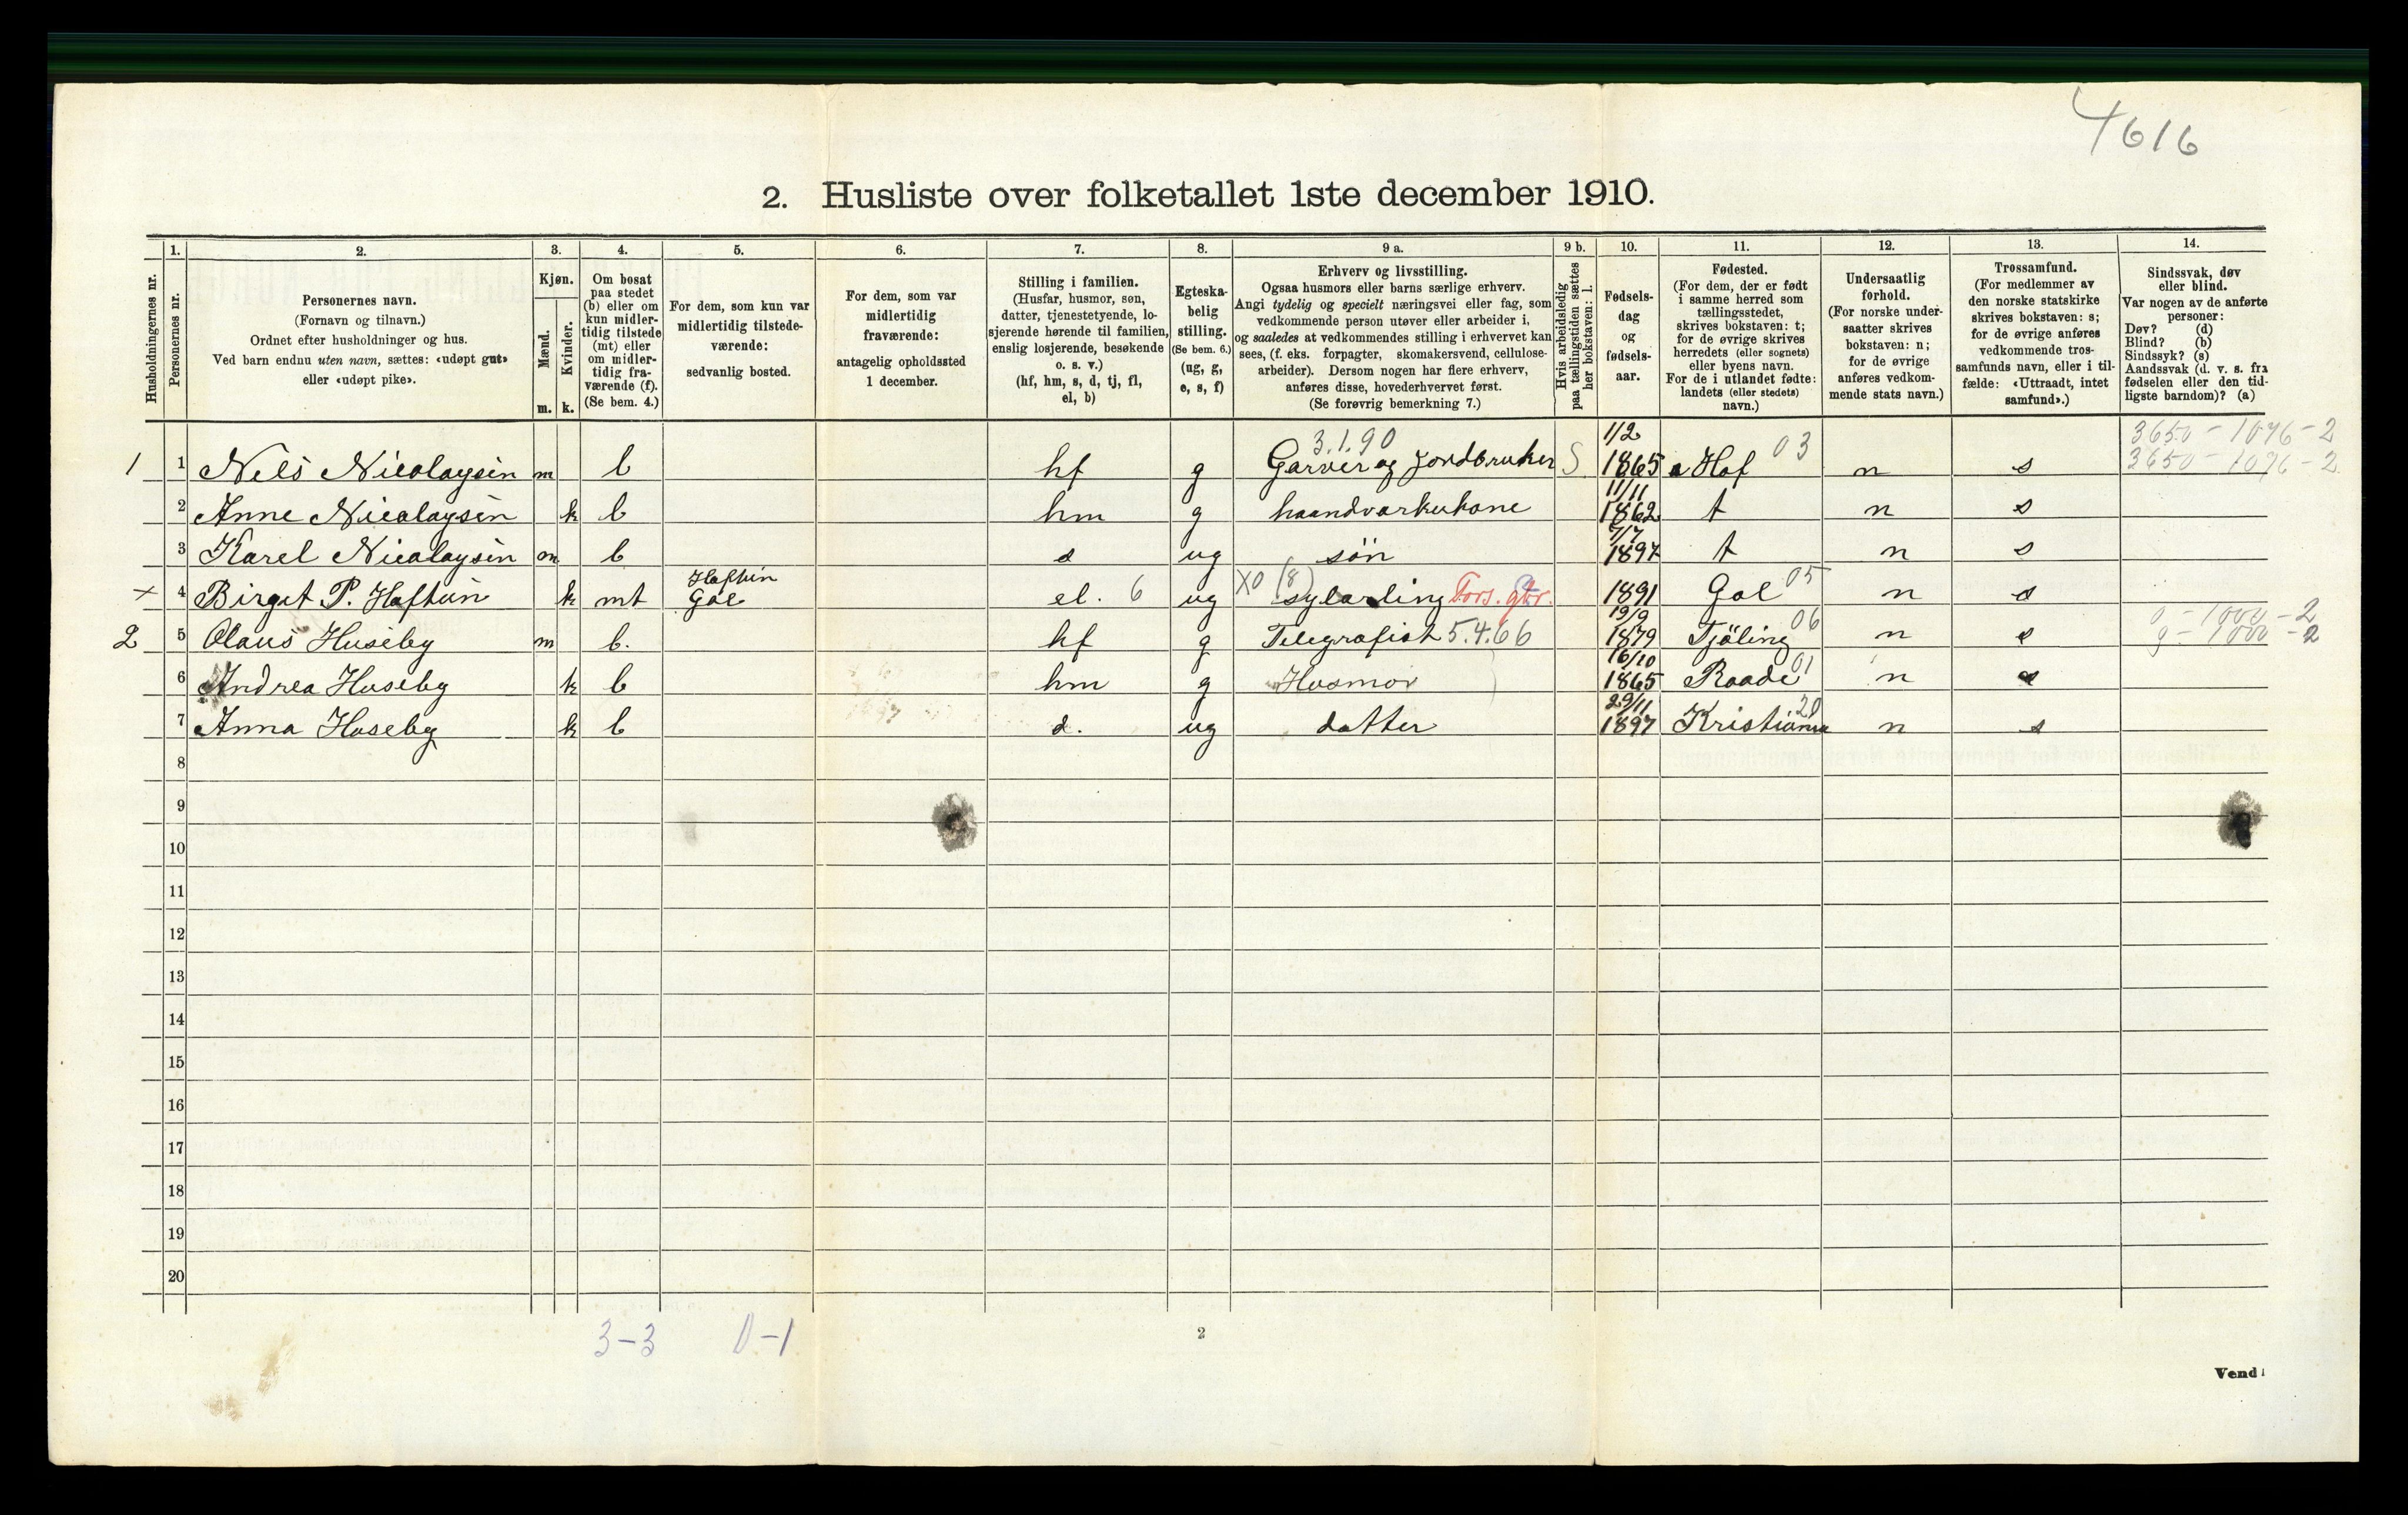 4616
2. Husliste over folketallet 1ste december 1910.
Husholdningernes nr.
1.
Personernes nr.
2.
Personernes navn.
(Fornavn og tilnavn.)
Ordnet efter husholdninger og hus.
Ved barn endnu uten navn, sættes: «udøpt gut»
eller «udøpt pike».
3.
Kjøn.
Mænd.
m.
Kvinder.
k.
4.
Om bosat
paa stedet
(b) eller om
kun midler-
tidig tilstede
(mt) eller
om midler-
tidig fra-
værende (f).
(Se bem. 4.)
5.
For dem, som kun var
midlertidig tilstede-
værende:
sedvanlig bosted.
6.
For dem, som var
midlertidig
fraværende:
antagelig opholdssted
1 december.
7.
Stilling i familien.
(Husfar, husmor, søn,
datter, tjenestetyende, lo-
sjerende hørende til familien,
enslig losjerende, besøkende
o. s. v.)
(hf, hm, s, d, tj, fl,
el, b)
8.
Egteska-
belig
stilling.
(Se bem. 6.)
(ug, g,
e, s, f)
9 a.
Erhverv og livsstilling.
Ogsaa husmors eller barns særlige erhverv.
Angi tydelig og specielt næringsvei eller fag, som
vedkommende person utøver eller arbeider i,
og saaledes at vedkommendes stilling i erhvervet kan
sees, (f. eks. forpagter, skomakersvend, cellulose-
arbeider). Dersom nogen har flere erhverv,
anføres disse, hovederhvervet først.
(Se forøvrig bemerkning 7.)
9 b.
Hvis arbeidsledig
paa tællingstiden sættes
her bokstaven: l.
10.
Fødsels-
dag
og
fødsels-
aar.
11.
Fødested.
(For dem, der er født
i samme herred som
tællingsstedet,
skrives bokstaven: t;
for de øvrige skrives
herredets (eller sognets)
eller byens navn.
For de i utlandet fødte:
landets (eller stedets)
navn.)
12.
Undersaatlig
forhold.
(For norske under-
saatter skrives
bokstaven: n;
for de øvrige
anføres vedkom-
mende stats navn.)
13.
Trossamfund.
(For medlemmer av
den norske statskirke
skrives bokstaven: s;
for de øvrige anføres
vedkommende tros-
samfunds navn, eller i til-
fælde: «Uttraadt, intet
samfund».)
14.
Sindssvak, døv
eller blind.
Var nogen av de anførte
personer:
Døv? (d)
Blind? (b)
Sindssyk? (s)
Aandssvak (d. v. s. fra
fødselen eller den tid-
ligste barndom)? (a)
3.1.90 1/2 03 3650-1076-2
1 1 Nils Nicolaysen m b hf g Garver og jordbruker S 1865 Hof n s 3650-1076-2
11/11
2 Anne Nicolaysen k b hm g haandverkerkone 1862 t n s
7/7
3 Karel Nicolaysen m b s ug søn 1897 t n s
Haftun
x 4 Birgit P. Haftun k mt Gol el. 6 ug X0 (8) sylærling Fors. gbr. 1891 Gol 05 n s
19/9 06 0-1000-2
2 5 Olaus Huseby m b. hf g Telegrafist 5.4.66 1879 Tjöling n s 0-1000-2
16/10 01
6 Andrea Huseby k b hm g Husmor 1865 Raade n s
29/11 20
7 Anna Huseby k b d. ug datter 1897 Kristiania n s
8
9
10
11
12
13
14
15
16
17
18
19
20
3-3 0-1
2
Vend!